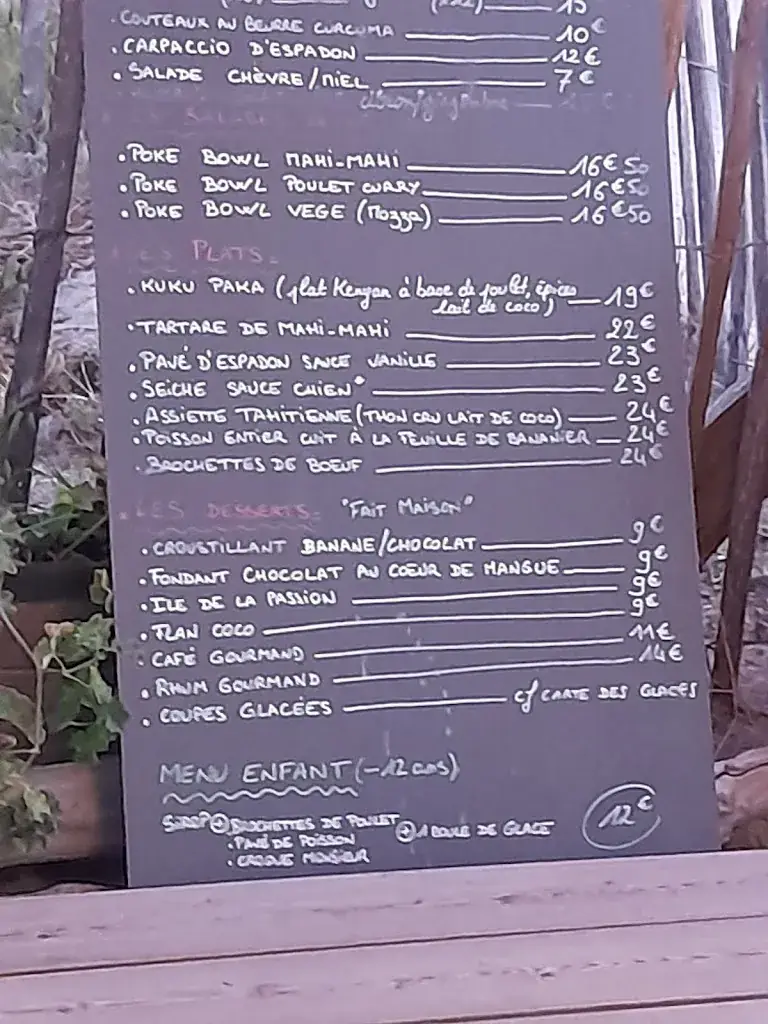 15
. COUTEAUX AU BEURRE CURCUMA 10€
. CARPACCIO D'ESPADON 12€
. SALADE CHÈVRE/MIEL 7€
. POKE BOWL MAHI-MAHI 16€50
. POKE BOWL POULET CURRY 16€50
. POKE BOWL VEGE (Mozza) 16€50
PLATS:
. KUKU PAKA (plat Kenyan à base de poulet, épices 19€
lait de coco)
. TARTARE DE MAHI-MAHI 22€
. PAVÉ D'ESPADON SAUCE VANILLE 23€
. SEICHE SAUCE CHIEN* 23€
. ASSIETTE TAHITIENNE (THON CRU LAIT DE COCO) 24€
. POISSON ENTIER CUIT À LA FEUILLE DE BANANIER 24€
. BROCHETTES DE BOEUF 24€
. LES DESSERTS: "FAIT MAISON"
. CROUSTILLANT BANANE/CHOCOLAT 9€
. FONDANT CHOCOLAT AU COEUR DE MANGUE 9€
. ILE DE LA PASSION 9€
. FLAN COCO 9€
. CAFÉ GOURMAND 11€
. RHUM GOURMAND 14€
. COUPES GLACÉES cf CARTE DES GLACES
MENU ENFANT (-12 ans)
SIROP + BROCHETTES DE POULET + 1 BOULE DE GLACE 12€
. PAVÉ DE POISSON
. CROQUE MONSIEUR